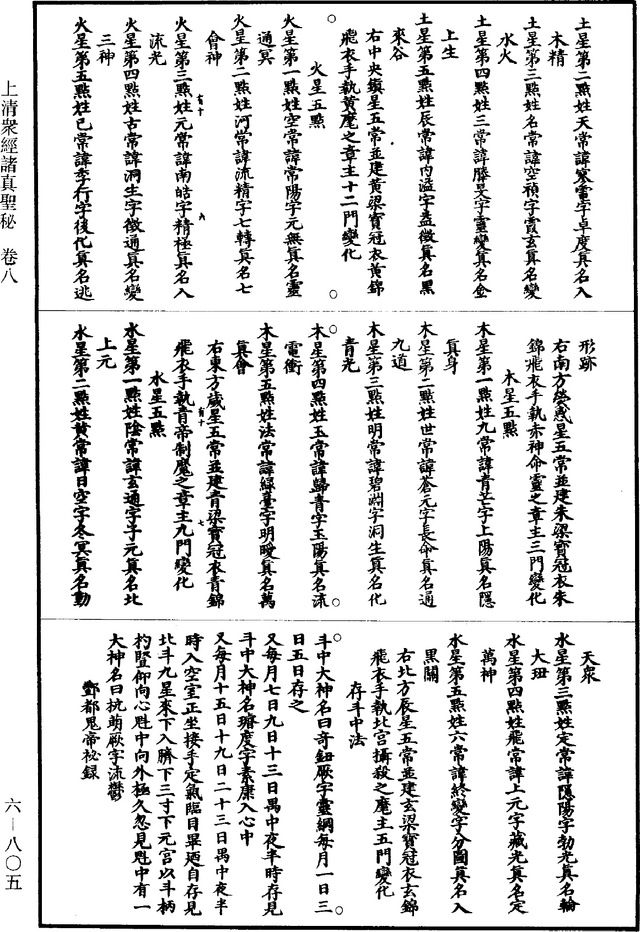 上清衆經諸真聖秘　卷八
土星第二點姓天常諱寒電字卓度真名入
木精
土星第三點姓名常諱空禎字霞玄真名變
水火
土星第四點姓三常諱滕旻字靈變真名金
上生
土星第五點姓辰常諱内溢字益微真名黑
來谷
右中央鎮星五常並建黄梁寳冠衣黄錦
飛衣手執黄魔之章主十二門變化
火星五點
火星第一點姓空常諱常陽字元無真名靈
通冥
火星第二點姓河常諱流精字七轉真名七
會神
火星第三點姓元常諱南皓字精極真名入
流光
火星第四點姓古常諱洞生字徵通真名變
三神
火星第五點姓巳常諱李行字後化真名逃
形跡
右南方熒惑星五常並建朱梁寳冠衣朱
錦飛衣手執赤神命靈之章主三門變化
木星五點
木星第一點姓九常諱青芒字上陽真名隱
真身
木星第二點姓世常諱蒼元字長命真名通
九道
木星第三點姓明常諱碧淵字洞生真名化
青光
木星第四點姓玉常諱歸青字玉陽真名流
電衝
木星第五點姓法常諱緑臺字明暖真名萬
真會
右東方歲星五常並建青梁寳冠衣青錦
飛衣手執青帝制魔之章主九門變化
水星五點
水星第一點姓陰常諱玄通字子元真名北
上元
水星第二點姓黄常諱日空字冬冥真名動
天衆
水星第三點姓定常諱隱陽字勃光真名輪
大𤣱
水星第四點姓飛常諱上元字藏光真名定
萬神
水星第五點姓六常諱終變字分圖真名入
黑關
右北方辰星五常並建玄梁寳冠衣玄錦
飛衣手執北宫攝殺之魔主五門變化
存斗中法
斗中大神名曰奇鈕厥字靈綱每月一日三
日五日存之
又每月七日九日十三日禺中夜半時存見
斗中大神名璿度字素康入心中
又每月十五日十九日二十三日禺中夜半
時入空室正坐接手定氣臨目畢迺自存見
北斗九星來下入臍下三寸下元宫以斗柄
杓豎仰向心魁中向外極久忽見魁中有一
大神名曰抗萌厥字流鬱
酆都鬼帝祕録
六—八〇五